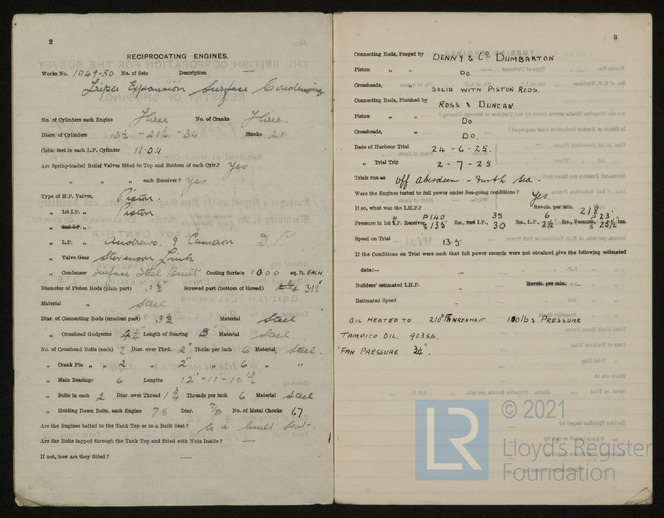 2
RECIPROCATING ENGINES.
Works No. 1049-50 No. of Sets Description —
Triple Expansion Surface Condensing
No. of Cylinders each Engine Three No. of Cranks Three.
Diars of Cylinders 13½ - 21½ - 34 Stroke 21
Cubic feet in each L.P. Cylinder 11.04
Are Spring-loaded Relief Valves fitted to Top and Bottom of each Cylr.? Yes
" " each Receiver? Yes
Type of H.P. Valves, Piston.
" 1st I.P. " Piston
" 2nd I.P. "
" L.P. " Andrews & Cameron D.
" Valve Gear Stevenson Link
" Condenser Surface Steel Built Cooling Surface 1000 sq. ft. EACH.
Diameter of Piston Rods (plain part) 3½" Screwed part (bottom of thread)
Material " Steel
Diar. of Connecting Rods (smallest part) 3½ Material Steel
" Crosshead Gudgeons Length of Bearing Material Steel
No. of Crosshead Bolts (each) 2 Diar. over Thrd. 2" Thrds. per inch 6 Material Steel.
" Crank Pin " 2 " 2" " 6 " "
" Main Bearings 6 Lengths
" Bolts in each 2 Diar. over Thread 1¾ Threads per inch 6 Material Steel
" Holding Down Bolts, each Engine 78 Diar. 7/8 No. of Metal Chocks 67.
Are the Engines bolted to the Tank Top or to a Built Seat? To a built seat.
Are the Bolts tapped through the Tank Top and fitted with Nuts Inside? —
If not, how are they fitted? —
3
Connecting Rods, Forged by DENNY & Co DUMBARTON
Piston " " DO
Crossheads, " SOLID WITH PISTON RODS.
Connecting Rods, Finished by ROSS & DUNCAN.
Piston " " DO
Crossheads, " DO.
Date of Harbour Trial 24-6-25.
" Trial Trip 2-7-25
Trials run at Off Aberdeen - North Sea.
Were the Engines tested to full power under Sea-going conditions? Yes.
If so, what was the I.H.P.? Revols. per min.
Pressure in 1st I.P. Receiver, P140 S135 lbs., 2nd I.P., 35 30 lbs., L.P., 6 2½ lbs., Vacuum, ins.
Speed on Trial 13.5
If the Conditions on Trial were such that full power records were not obtained give the following estimated
data:—
Builders' estimated I.H.P. Revols. per min.
Estimated Speed
OIL HEATED TO 210° FAHRENHEIT 100lbs PRESSURE
TAMPICO OIL .90356.
FAN PRESSURE ¾".
LR
© 2021
Lloyd's Register
Foundation